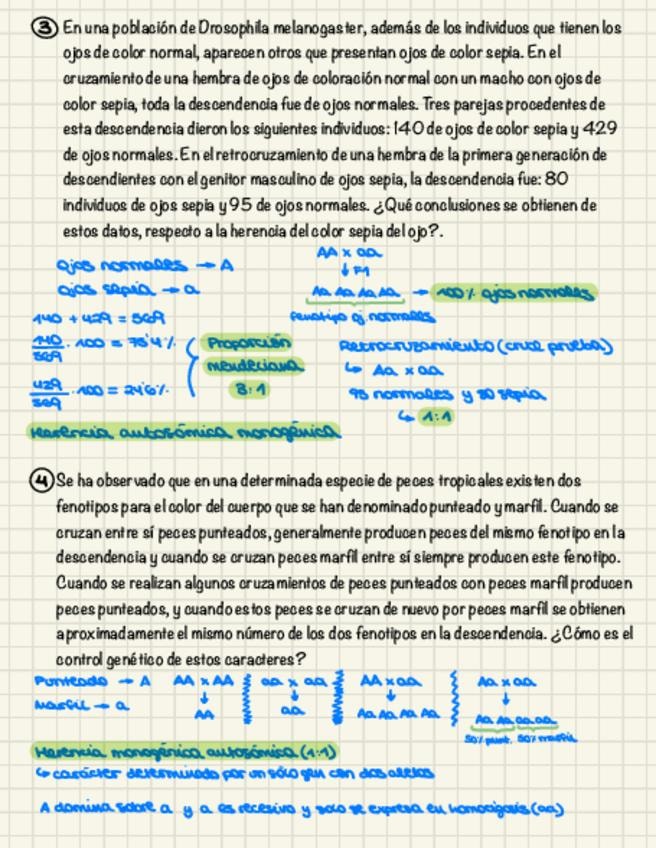 ③ En una población de Drosophila melanogaster, además de los individuos que tienen los
ojos de color normal, aparecen otros que presentan ojos de color sepia. En el
cruzamiento de una hembra de ojos de coloración normal con un macho con ojos de
color sepia, toda la descendencia fue de ojos normales. Tres parejas procedentes de
esta descendencia dieron los siguientes individuos: 140 de ojos de color sepia y 429
de ojos normales. En el retrocruzamiento de una hembra de la primera generación de
descendientes con el genitor masculino de ojos sepia, la descendencia fue: 80
individuos de ojos sepia y 95 de ojos normales. ¿Qué conclusiones se obtienen de
estos datos, respecto a la herencia del color sepia del ojo?.
Ojos normales → A
Ojos sepia → a
AA x aa
↓ F1
Aa Aa Aa Aa → 100% ojos normales
fenotipo oj. normales
140 + 429 = 569
140/569 · 100 = 75'4%
429/569 · 100 = 24'6%
Proporción
mendeliana
3:1
Retrocruzamiento (cruz prueba)
↳ Aa x aa
95 normales y 80 sepia
↳ 1:1
Herencia autosómica monogénica
④ Se ha observado que en una determinada especie de peces tropicales existen dos
fenotipos para el color del cuerpo que se han denominado punteado y marfil. Cuando se
cruzan entre sí peces punteados, generalmente producen peces del mismo fenotipo en la
descendencia y cuando se cruzan peces marfil entre sí siempre producen este fenotipo.
Cuando se realizan algunos cruzamientos de peces punteados con peces marfil producen
peces punteados, y cuando estos peces se cruzan de nuevo por peces marfil se obtienen
aproximadamente el mismo número de los dos fenotipos en la descendencia. ¿Cómo es el
control genético de estos caracteres?
Punteado → A
Marfil → a
AA x AA
↓
AA
aa x aa
↓
aa
AA x aa
↓
Aa Aa Aa Aa
Aa x aa
↓
Aa Aa aa aa
50% punt. 50% marfil
Herencia monogénica autosómica (1:1)
↳ carácter determinado por un sólo gen con dos alelos
A domina sobre a y a es recesivo y solo se expresa en homocigosis (aa)